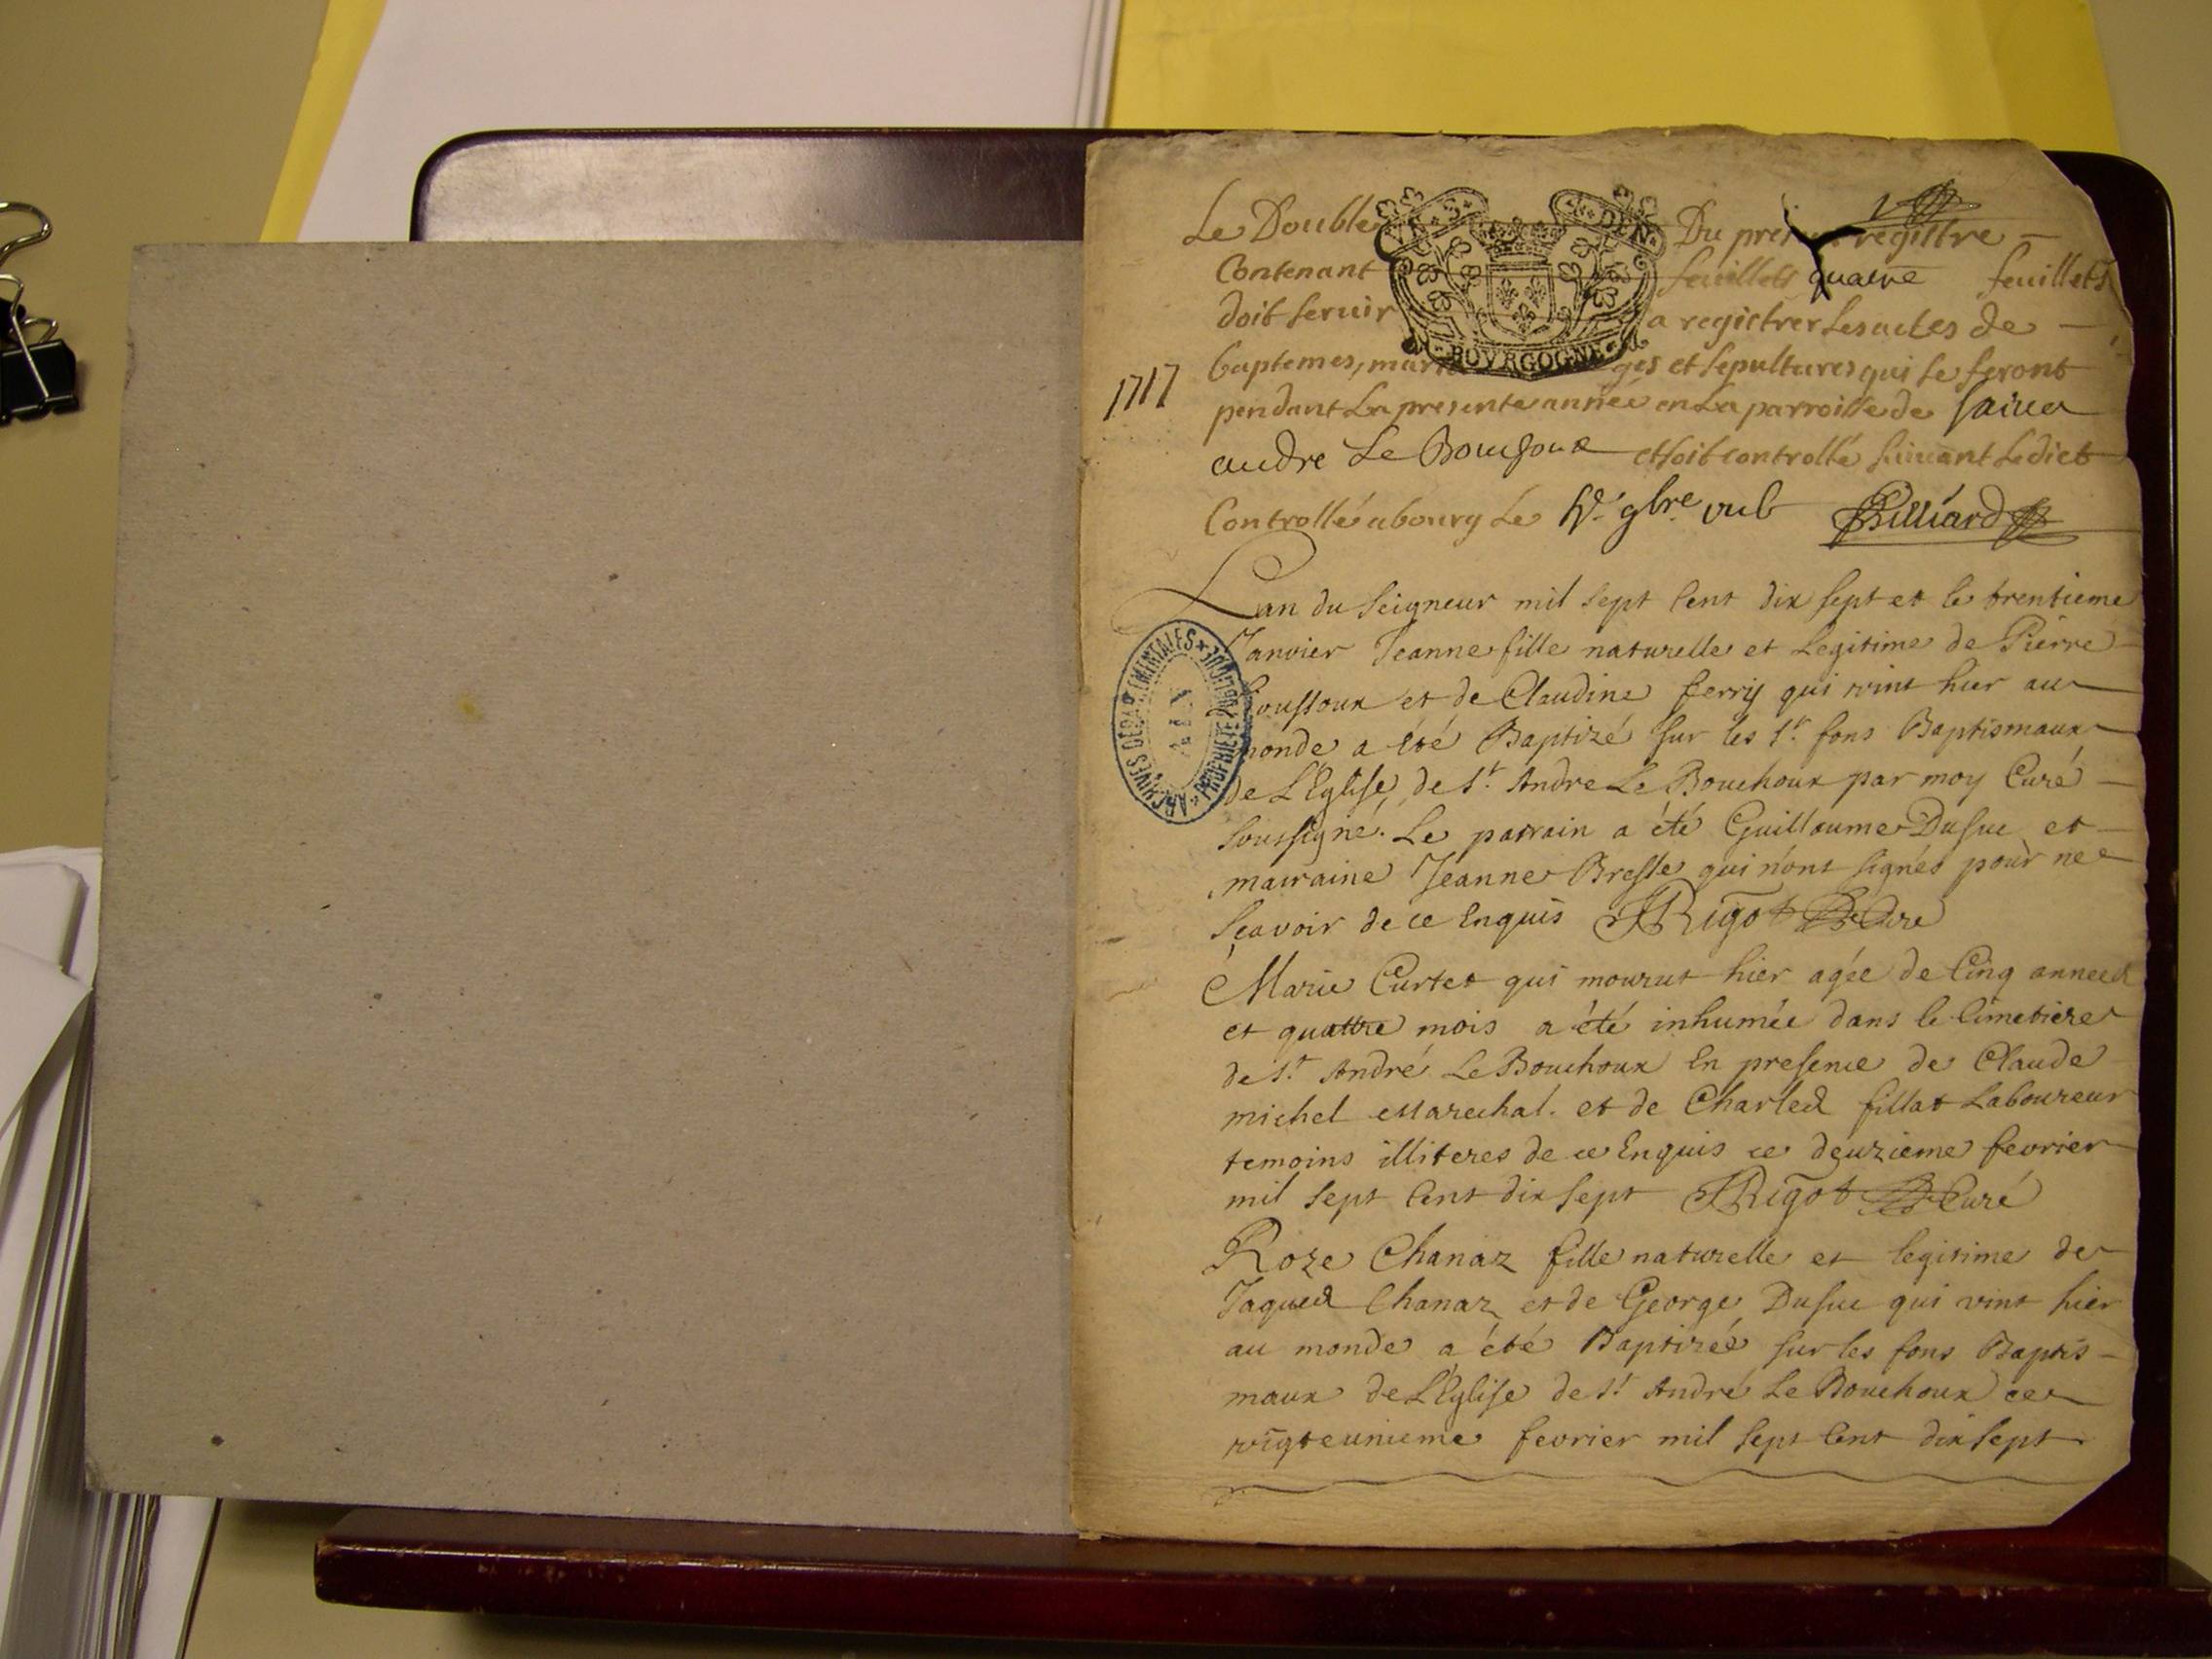 Le Double Du present registre
Contenant feuillets quatre feuillets
doit servir a registrer les actes de
baptemes, mariages et sepultures qui se feront
1717
pendant La presente année en La parroisse de saint
andre Le Bouchoux et soit controllé suivant Ledict
Controllé a bourg Le 9bre Billiard
VN S DEN
BOVRGOGNE
Lan du Seigneur mil sept Cent dix sept et le trentieme
Janvier Jeanne fille naturelle et Legitime de Pierre
et de Claudine ferry qui vint hier au
monde a été Baptizé sur les Sts fons Baptismaux
de L'Eglise de St Andre Le Bouchoux par moy Curé
soussigné. Le parrain a été Guillaume Dufuc et
mairaine Jeanne Bresse qui n'ont signés pour ne
sçavoir de ce Enquis JRigot Curé
Marie Curtet qui mourut hier agée de Cinq années
et quattre mois a été inhumée dans le Cimetiere
de St André Le Bouchoux En presence de Claude
michel Marechal. et de Charles fillat Laboureur
temoins illiteres de ce Enquis ce deuzieme fevrier
mil sept Cent dix sept JRigot Curé
Roze Chanaz fille naturelle et legitime de
Jaques Chanaz et de George Dufuc qui vint hier
au monde a été Baptizée sur les fons Baptis-
maux de L'Eglise de St André Le Bouchoux ce
vigteunieme fevrier mil sept Cent dix sept
ARCHIVES DÉPARTEMENTALES * PROPRIÉTÉ PUBLIQUE *
AIN